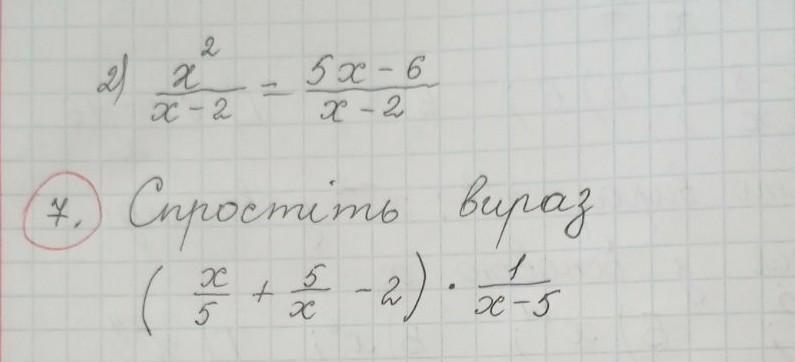 2) x²/(x-2) = (5x-6)/(x-2)
7. Спростіть вираз
(x/5 + 5/x - 2) · 1/(x-5)